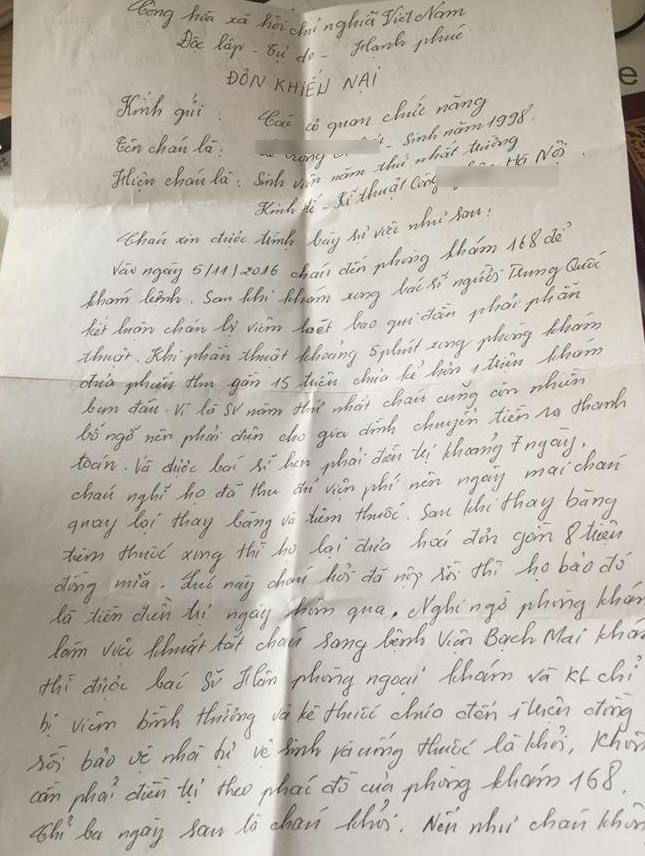 Cộng hòa xã hội chủ nghĩa Việt Nam
Độc lập - Tự do - Hạnh phúc
ĐƠN KHIẾU NẠI
Kính gửi: Các cơ quan chức năng
Tên cháu là: - Sinh năm 1998.
Hiện cháu là: Sinh viên năm thứ nhất trường
Kinh tế - Kĩ thuật Công Hà Nội.
Cháu xin được trình bày sự việc như sau:
Vào ngày 5/11/2016 cháu đến phòng khám 168 để
khám bệnh. Sau khi khám xong bác sĩ người Trung Quốc
kết luận cháu bị viêm loét bao qui đầu phải phẫn
thuật. Khi phẫn thuật khoảng 5 phút xong phòng khám
đưa phiếu thu gần 15 triệu chưa kể hơn 1 triệu khám
ban đầu. Vì là SV năm thứ nhất cháu cũng còn nhiều
bỡ ngỡ nên phải điện cho gia đình chuyển tiền ra thanh
toán. Và được bác sĩ hẹn phải điều trị khoảng 7 ngày,
cháu nghĩ họ đã thu đủ viện phí nên ngày mai cháu
quay lại thay băng và tiêm thuốc. Sau khi thay băng
tiêm thuốc xong thì họ lại đưa hoá đơn gần 8 triệu
đồng nữa. Lúc này cháu hỏi đã nộp rồi thì họ bảo đó
là tiền điều trị ngày hôm qua. Nghi ngờ phòng khám
làm việc khuất tất cháu sang bệnh viện Bạch Mai khá
thì được bác sỹ Hân phòng ngoại khám và KL chỉ
bị viêm bình thường và kê thuốc chưa đến 1 triệu đồng
rồi bảo về nhà tự vệ sinh và uống thuốc là khỏi, khôn
cần phải điều trị theo phác đồ của phòng khám 168.
Chỉ ba ngày sau là cháu khỏi. Nếu như cháu khôn